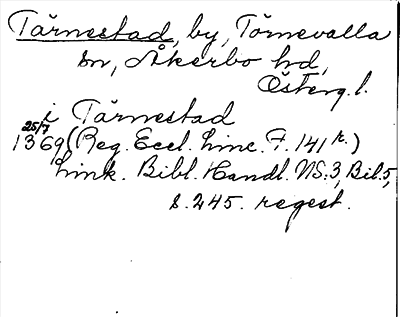 Tärnestad, by, Törnevalla
sn, Åkerbo hd,
Österg. l.
i Tärnestad
25/7
1369 (Reg. Eccl. Linc. F. 141 r.)
Link. Bibl. Handl. NS:3, Bil. 5,
s. 245. regest.